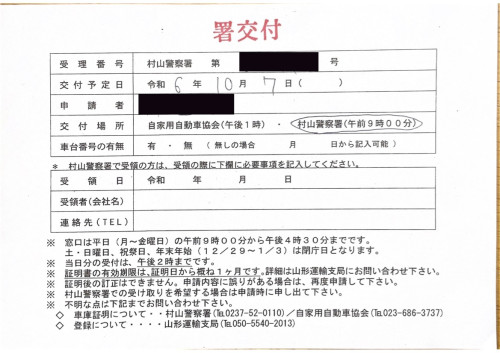 署交付
受理番号 村山警察署 第 号
交付予定日 令和 6 年 10 月 7 日 ( )
申請者
交付場所 自家用自動車協会(午後1時) ・ 村山警察署(午前9時00分)
車台番号の有無 有 ・ 無 ( 無しの場合 月 日から記入可能 )
* 村山警察署で受領の方は、受領の際に下欄に必要事項を記入してください。
受領日 令和 年 月 日
受領者(会社名)
連絡先(TEL)
※ 窓口は平日(月~金曜日)の午前9時00分から午後4時30分までです。
土・日曜日、祝祭日、年末年始(12/29~1/3)は閉庁日となります。
※ 当日分の受付は、午後2時までです。
※ 証明書の有効期限は、証明日から概ね1ヶ月です。詳細は山形運輸支局にお問い合わせ下さい。
※ 証明後の訂正はできません。申請内容に誤りがある場合は、再度申請して下さい。
※ 村山警察署での受け取りを希望する場合は申請時に申し出て下さい。
※ 不明な点は下記までお問い合わせ下さい。
◇ 車庫証明について・・村山警察署(℡0237-52-0110)/自家用自動車協会(℡023-686-3737)
◇ 登録について・・・・山形運輸支局(℡050-5540-2013)